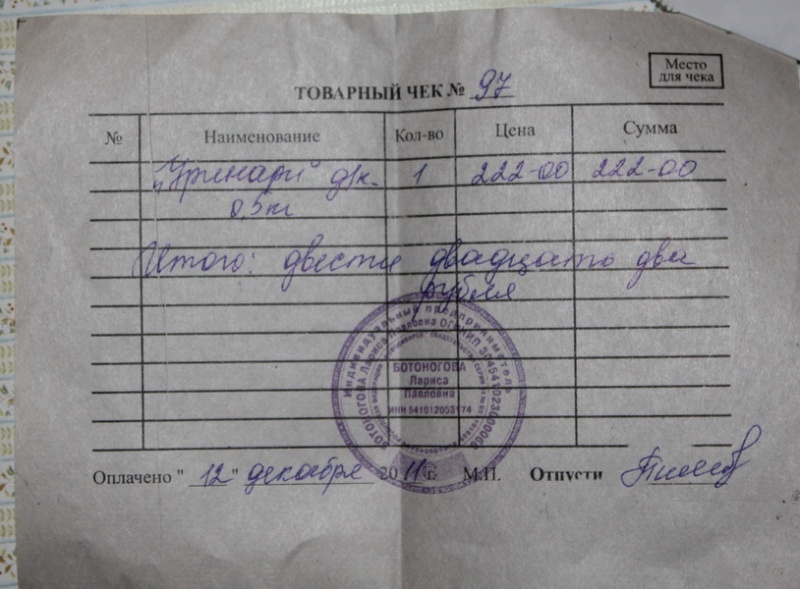 Место
для чека
ТОВАРНЫЙ ЧЕК № 97
№ Наименование Кол-во Цена Сумма
"Уринари" д/к. 1 222-00 222-00
0,5кг
Итого: двести двадцать два
рубля
Индивидуальный предприниматель
БОТОНОГОВА Лариса Павловна ОГРНИП
БОТОНОГОВА
Лариса
Павловна
ИНН
Оплачено "12" декабря 2011 г. М.П. Отпусти